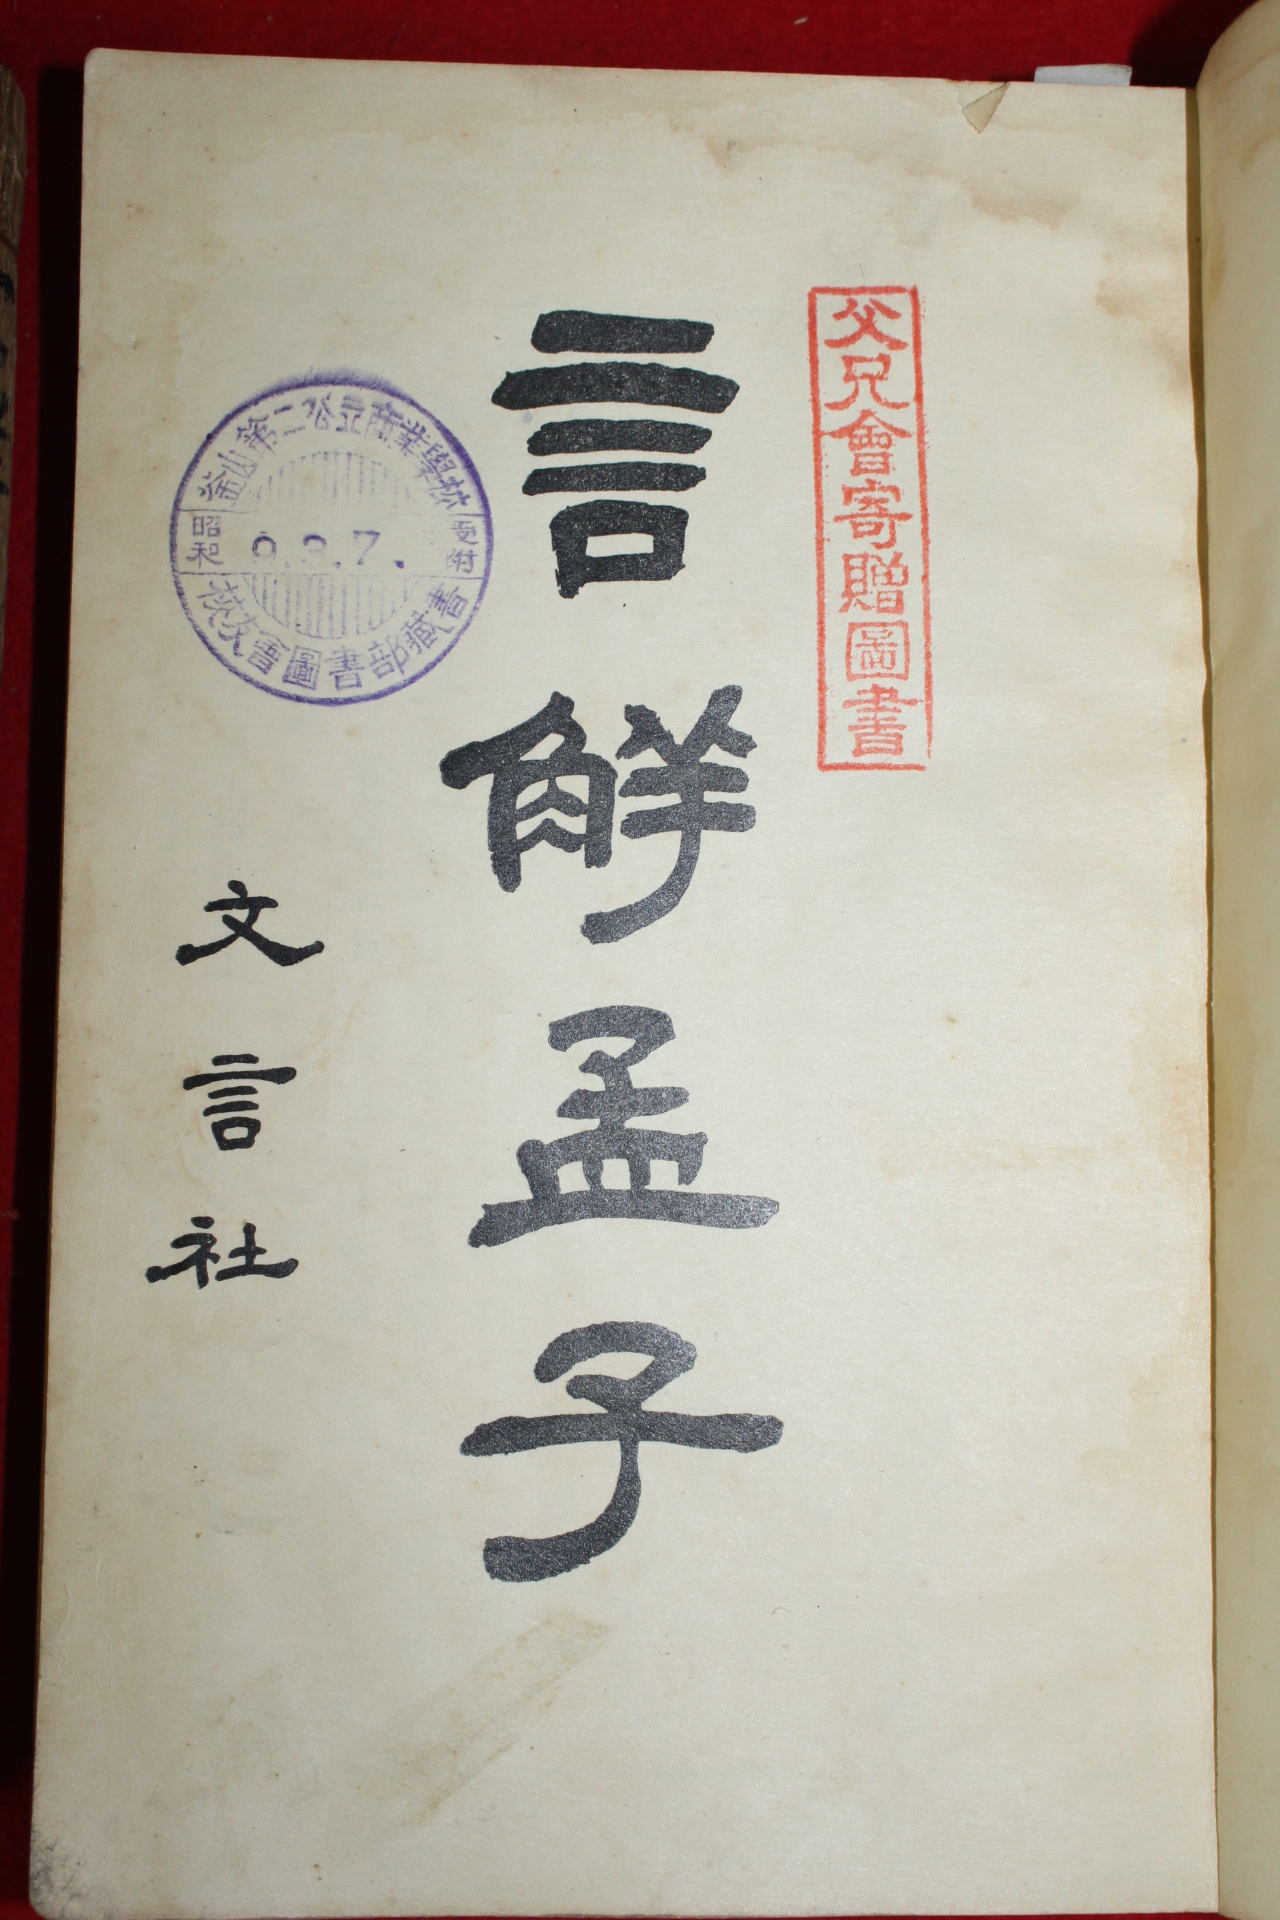 父兄會寄贈圖書
言解孟子
文言社
釜山第二公立商業學校
昭和
9.3.7.
受附
校友會圖書部藏書